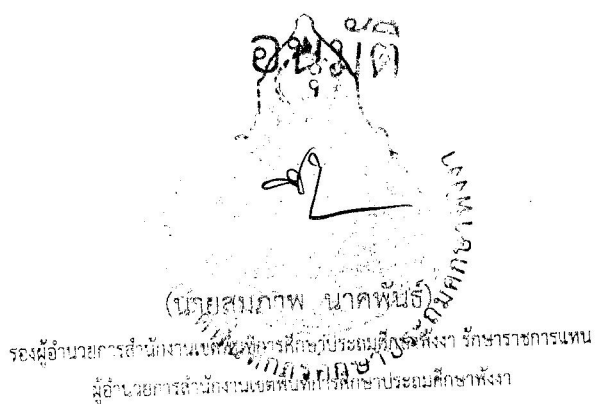 อนุมัติ
(นายสมภาพ นาคพันธ์)
รองผู้อำนวยการสำนักงานเขตพื้นที่การศึกษาประถมศึกษาพังงา รักษาราชการแทน
ผู้อำนวยการสำนักงานเขตพื้นที่การศึกษาประถมศึกษาพังงา